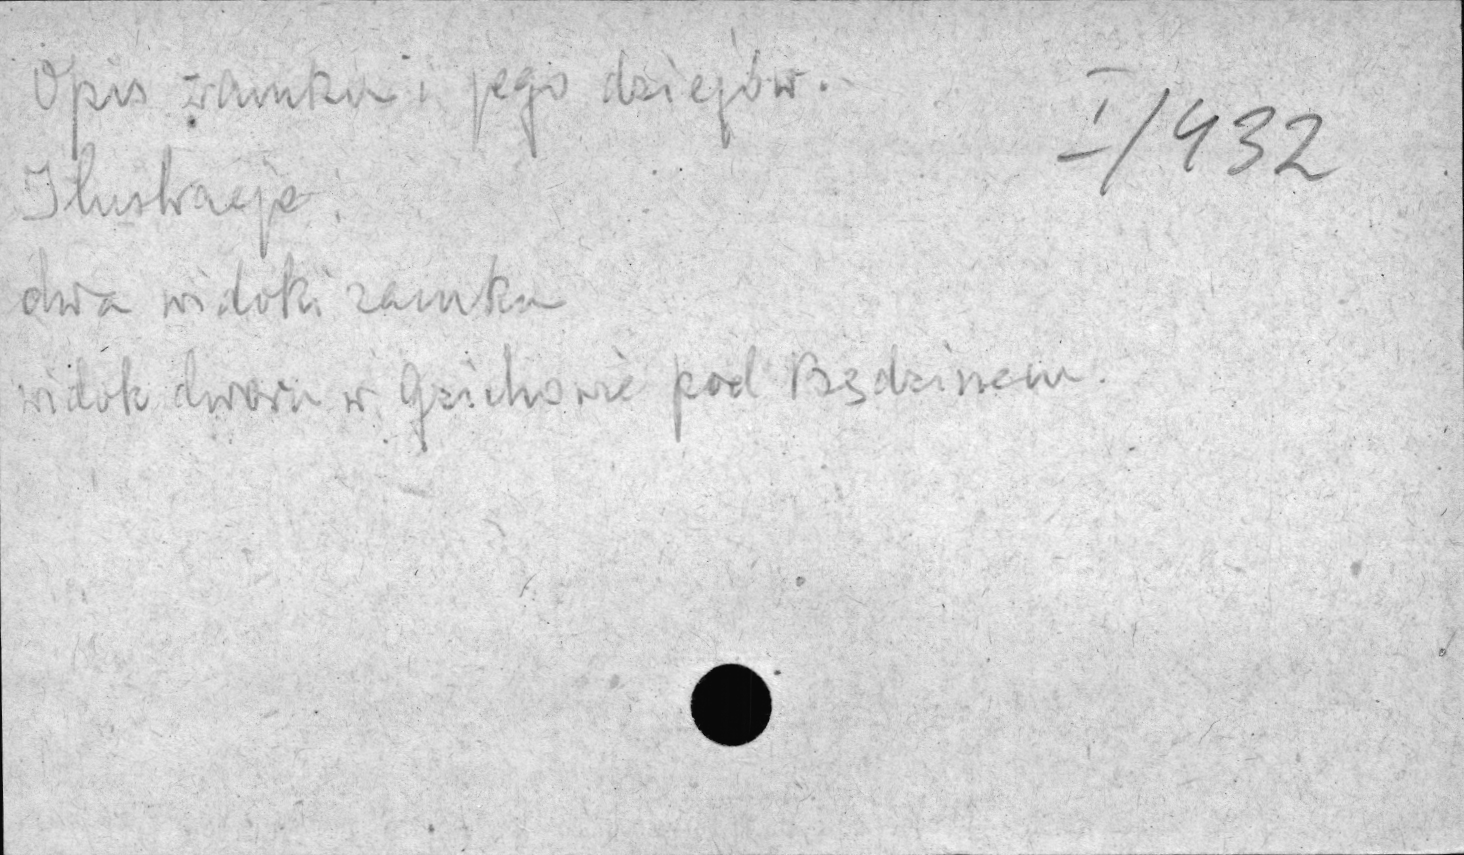 Opis zamku i jego dziejów.
I/432
Ilustracje:
dwa widoki zamku
widok dworu w Gzichowie pod Będzinem.